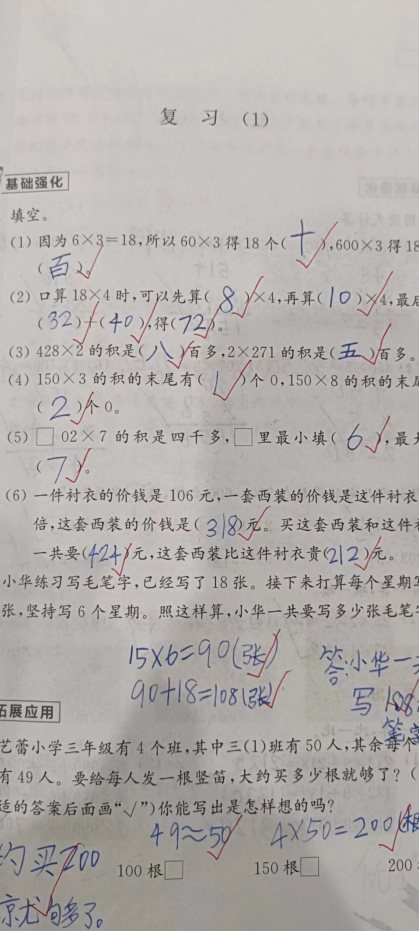 复 习 (1)
基础强化
填空。
(1) 因为6×3=18,所以60×3得18个(十),600×3得18
(百)。
(2) 口算18×4时,可以先算(8)×4,再算(10)×4,最后
(32)+(40),得(72)。
(3) 428×2的积是(八)百多,2×271的积是(五)百多。
(4) 150×3的积的末尾有(1)个0,150×8的积的末尾
(2)个0。
(5) □02×7的积是四千多,□里最小填(6),最大
(7)。
(6) 一件衬衣的价钱是106元,一套西装的价钱是这件衬衣
倍,这套西装的价钱是(318)元。买这套西装和这件衬
一共要(424)元,这套西装比这件衬衣贵(212)元。
小华练习写毛笔字,已经写了18张。接下来打算每个星期写
张,坚持写6个星期。照这样算,小华一共要写多少张毛笔字
15×6=90(张) 答:小华一共
90+18=108(张) 写108
拓展应用
艺蕾小学三年级有4个班,其中三(1)班有50人,其余每个
有49人。要给每人发一根竖笛,大约买多少根就够了?(
适的答案后面画“√”)你能写出是怎样想的吗?
49≈50 4×50=200(根
约买200 100根□ 150根□ 200
就够了。